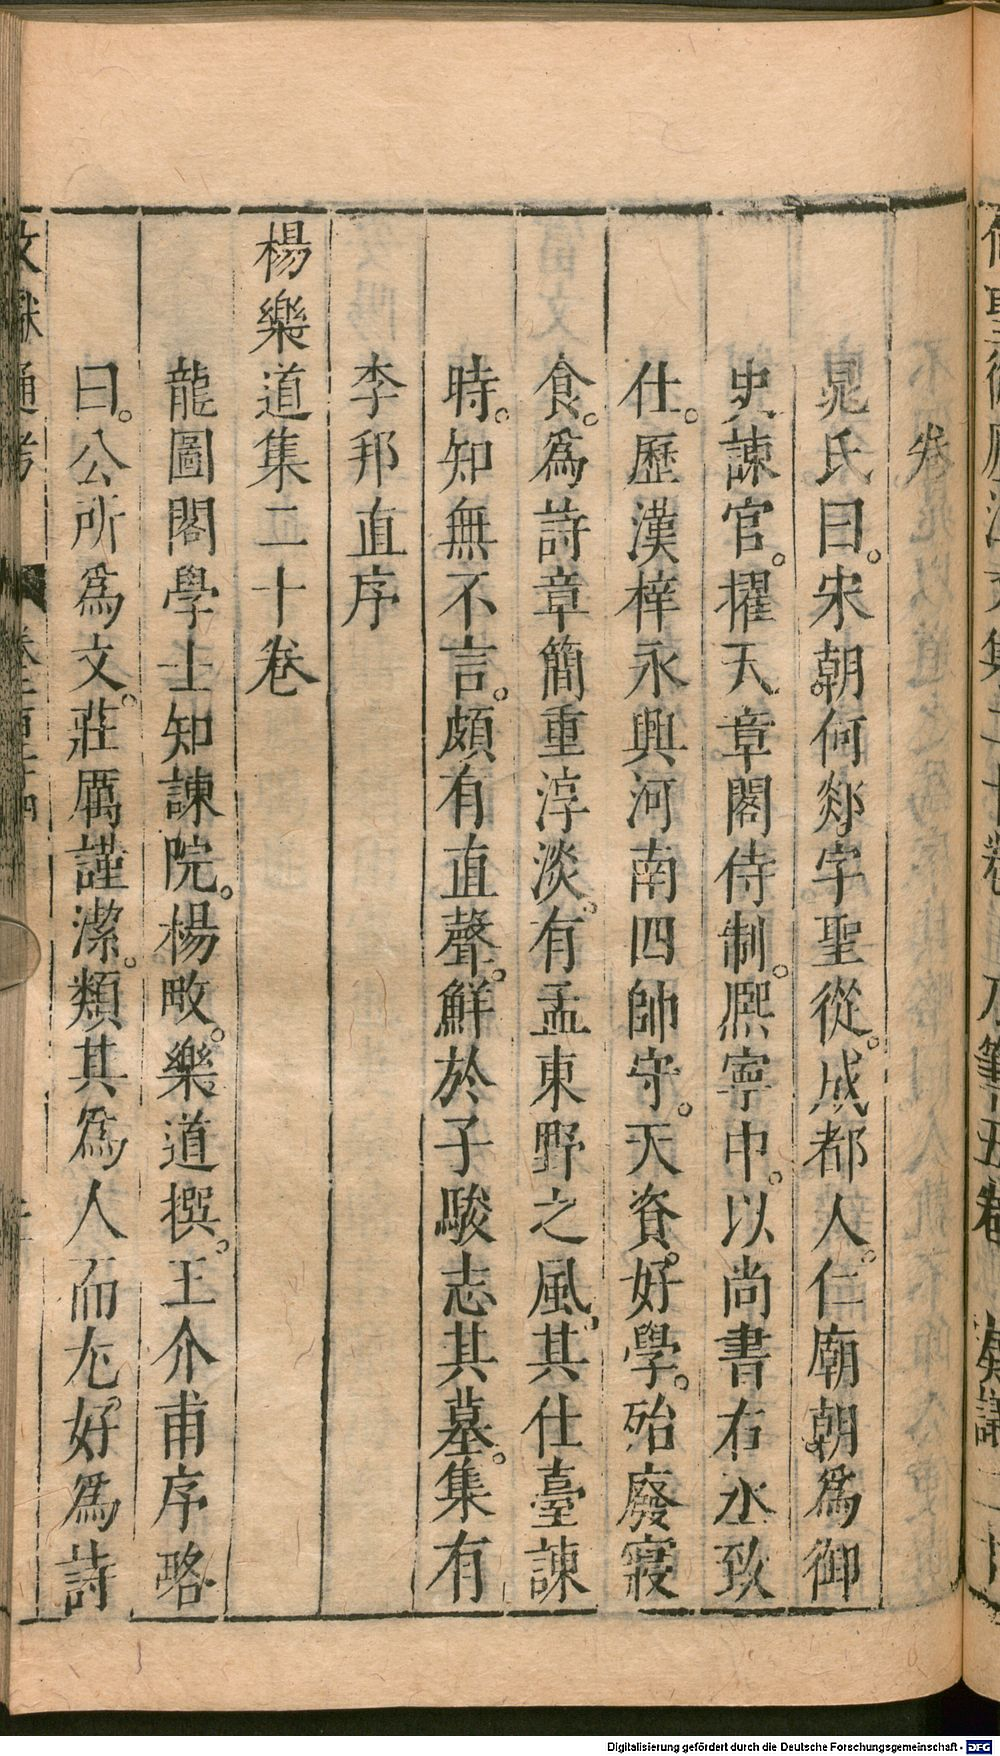 卷
晁氏曰宋朝何郯字聖從成都人仁廟朝爲御
史諫官擢天章閣侍制熙寧中以尚書右丞致
仕歷漢梓永興河南四帥守天資好學殆廢寢
食爲詩章簡重淳淡有孟東野之風其仕臺諫
時知無不言頗有直聲鮮於子駿志其墓集有
李邦直序
楊樂道集二十卷
龍圖閣學士知諫院楊畋樂道撰王介甫序略
曰公所爲文莊厲謹潔類其爲人而尤好爲詩
文獻通考
Digitalisierung gefördert durch die Deutsche Forschungsgemeinschaft - DFG